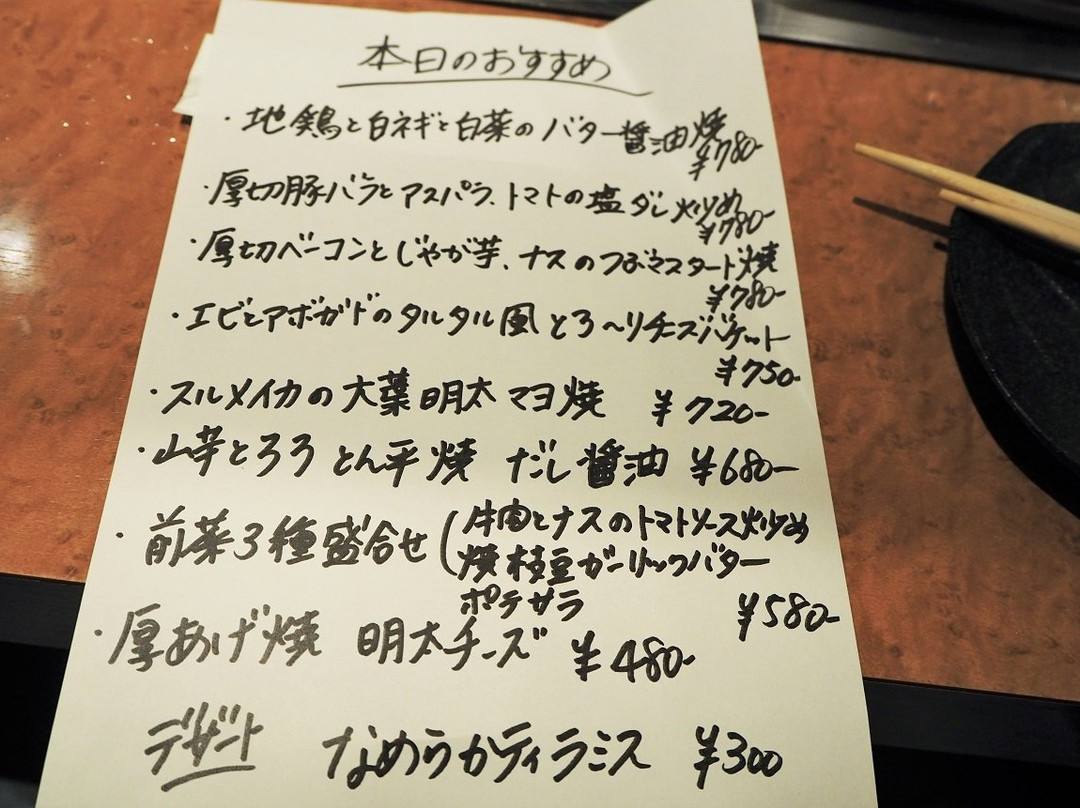 本日のおすすめ
・地鶏と白ネギと白菜のバター醤油焼
¥780-
・厚切豚バラとアスパラ、トマトの塩ダレ炒め
¥780-
・厚切ベーコンとじゃが芋、ナスのつぶマスタード焼
¥780-
・エビとアボガドのタルタル風とろ〜りチーズバゲット
¥750-
・スルメイカの大葉明太マヨ焼 ¥720-
・山芋とろろとん平焼 だし醤油 ¥680-
・前菜3種盛合せ(牛肉とナスのトマトソース炒め
焼枝豆ガーリックバター
ポテサラ
¥580-
・厚あげ焼 明太チーズ ¥480-
デザート なめらかティラミス ¥300